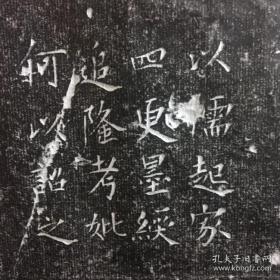 以儒起家
四更墨綬
追隆考妣
何以詔之
孔夫子旧书网